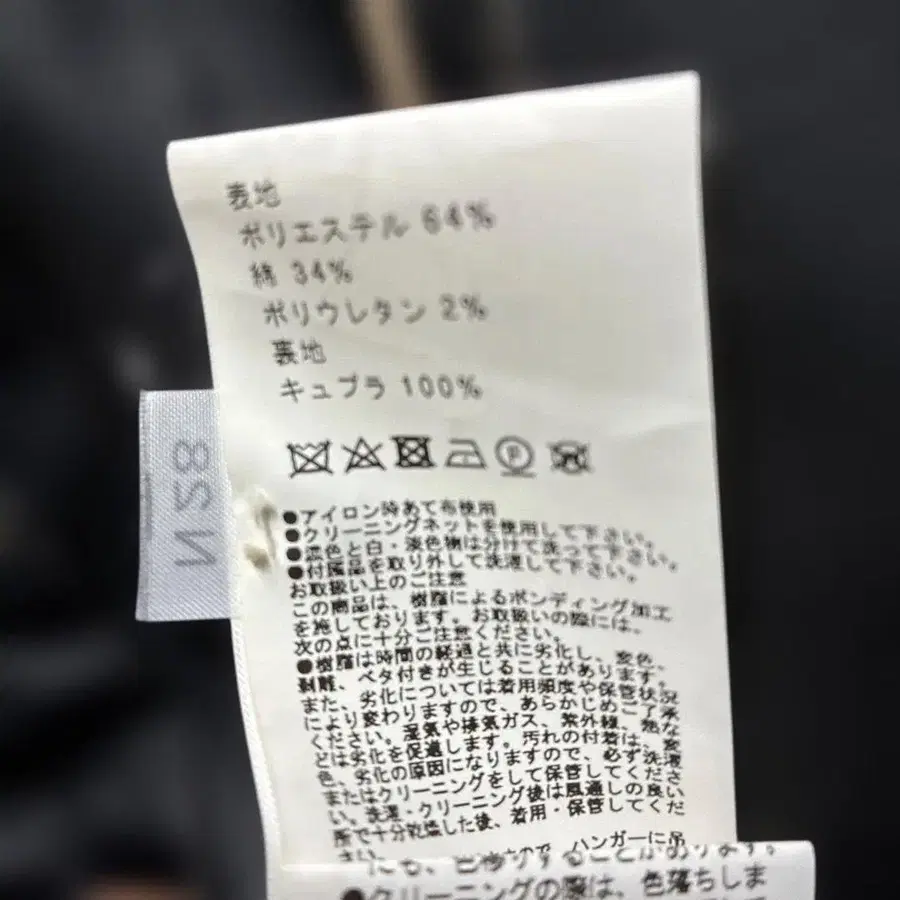 表地
ポリエステル 64%
綿 34%
ポリウレタン 2%
裏地
キュプラ 100%
P
●アイロン時あて布使用
●クリーニングネットを使用して下さい。
●濃色と白・淡色物は分けて洗って下さい。
●付属品を取り外して洗濯して下さい。
お取扱い上のご注意
この商品は、樹脂によるボンディング加工
を施しております。お取扱いの際には、
次の点に十分ご注意ください。
●樹脂は時間の経過と共に劣化し、変色、
剥離、ベタ付きが生じることがあります。
また、劣化については着用頻度や保管状況
により変わりますので、あらかじめご了承
ください。湿気や排気ガス、紫外線、熱な
どは劣化を促進します。汚れの付着は、変
色、劣化の原因になりますので、必ず洗濯
またはクリーニングをして保管してくださ
い。洗濯・クリーニング後は風通しの良い
所で十分乾燥した後、着用・保管してくだ
さい。
ので、ハンガーに吊
にも、色移りすることがあります。
●クリーニングの際は、色落ちしま
N28